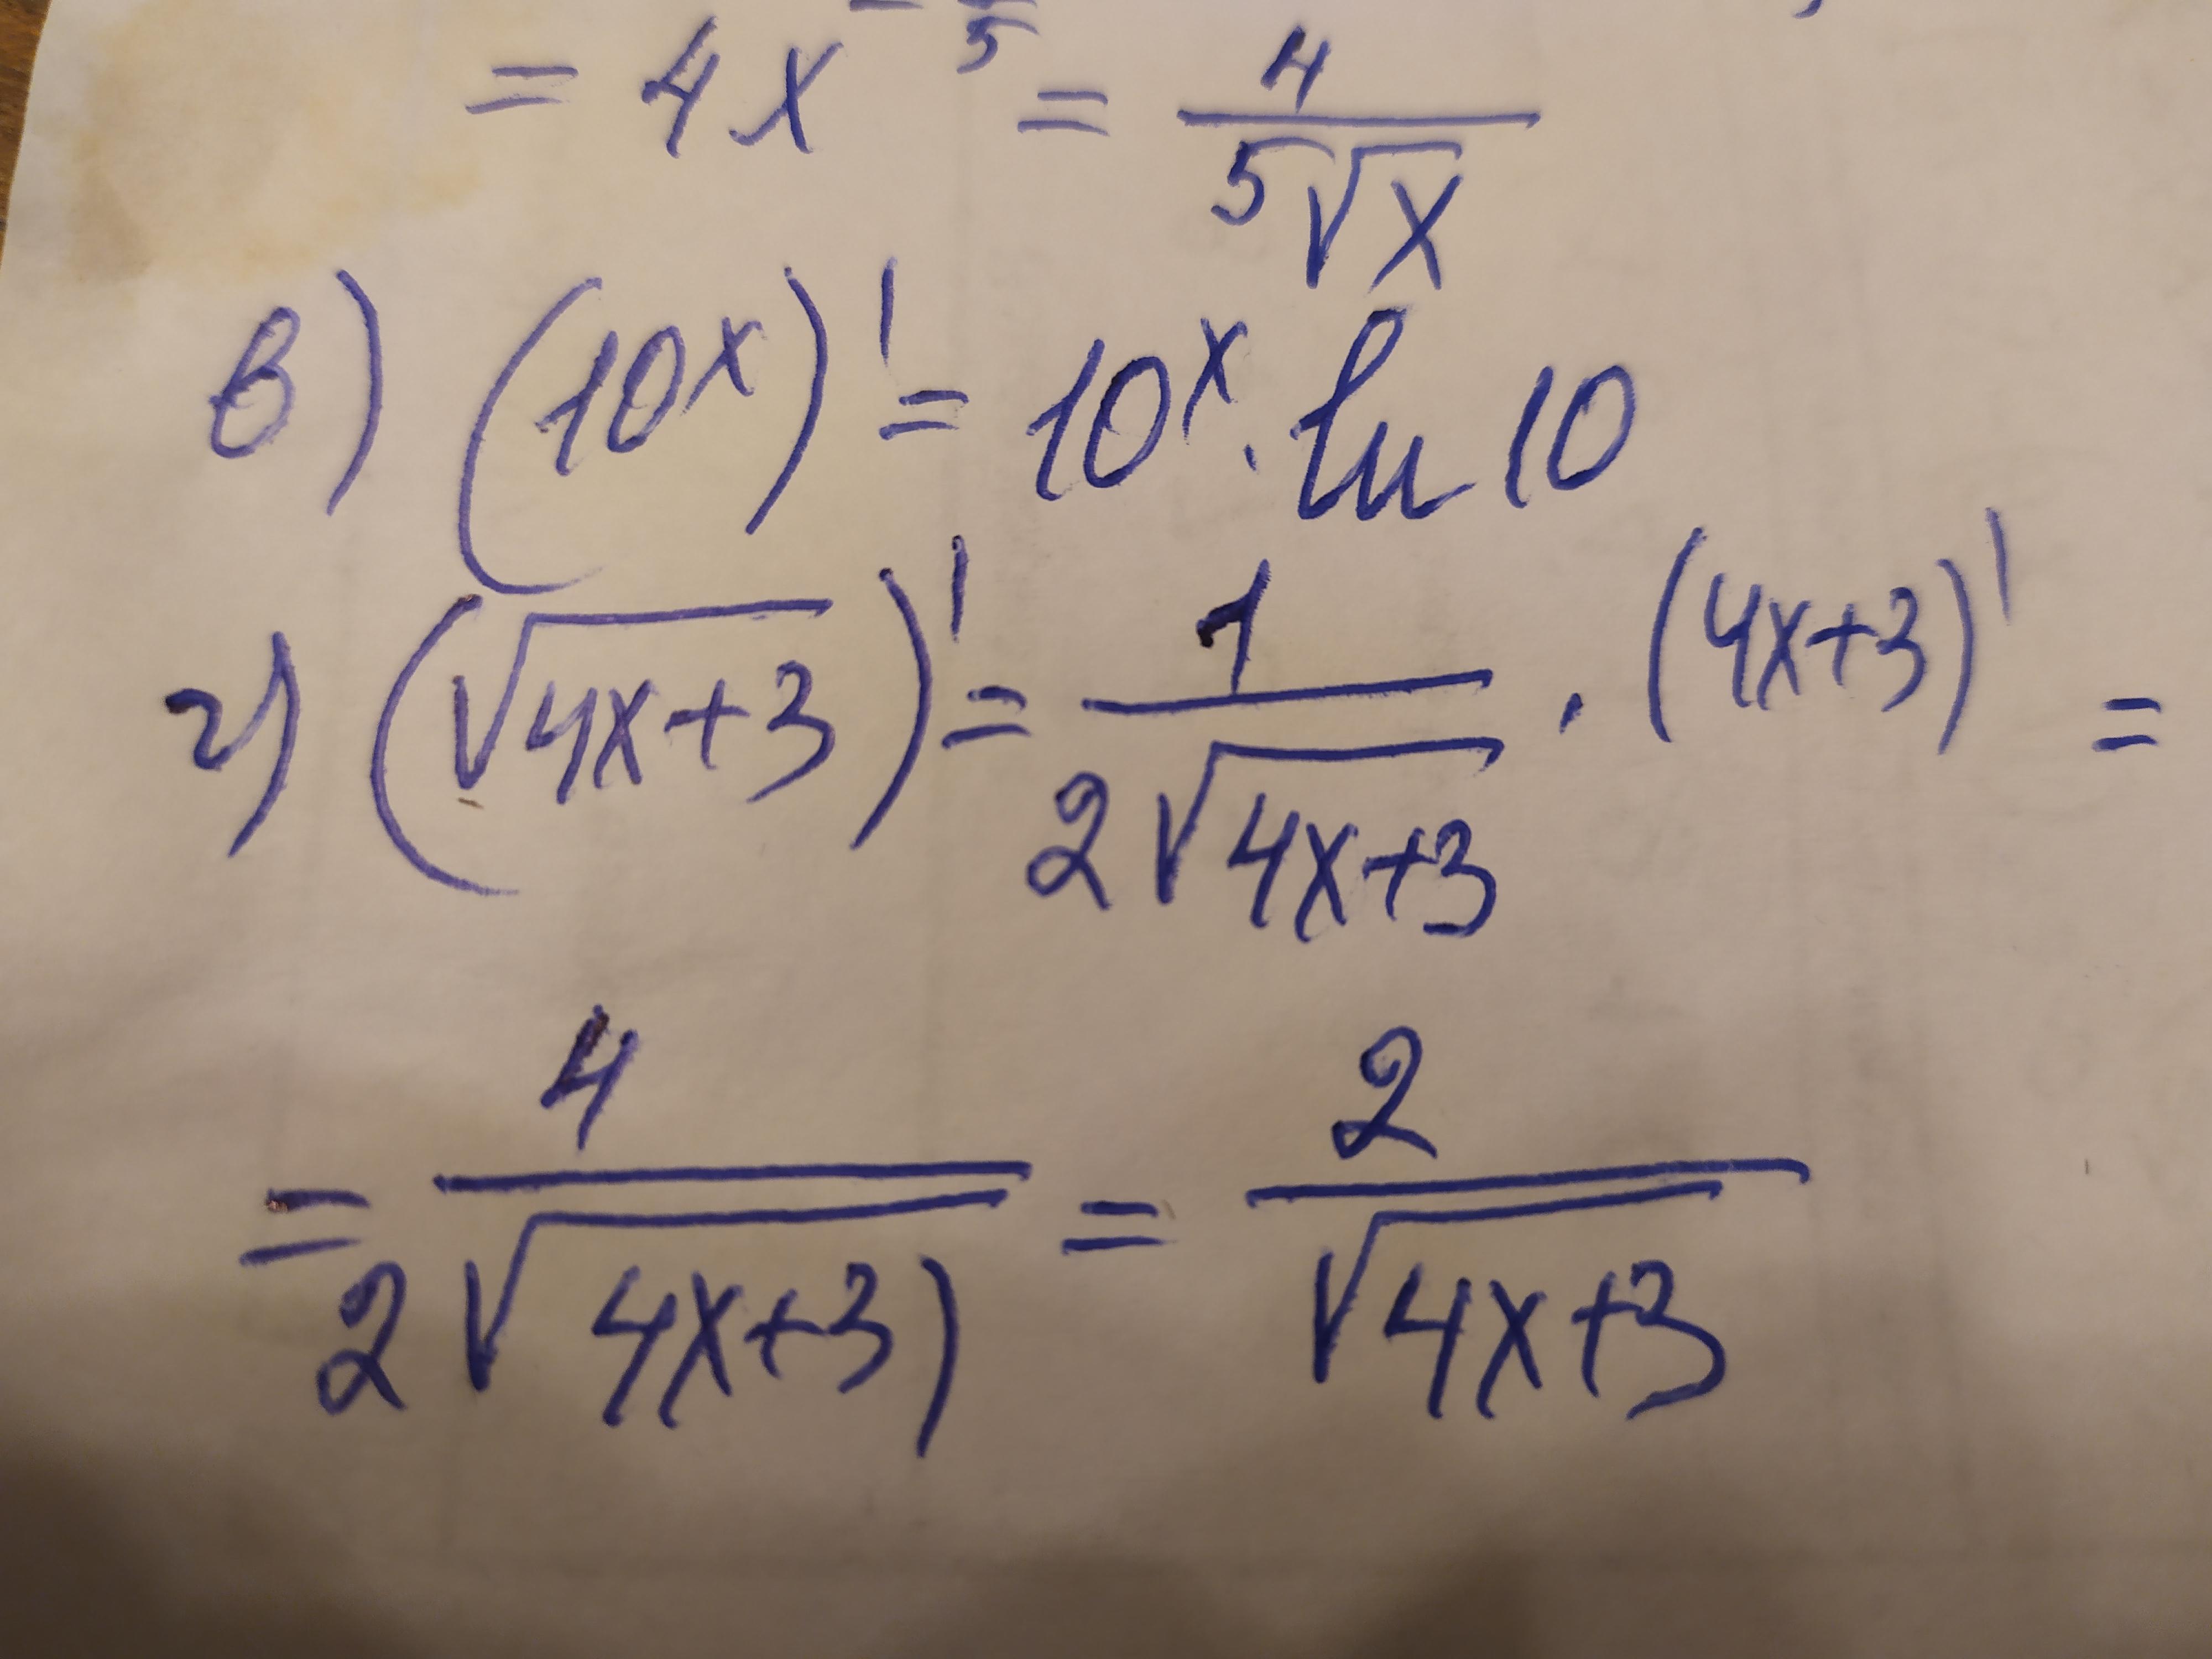 = 4x^{-\frac{}{5}} = \frac{4}{\sqrt[5]{x}}
в) (10^x)' = 10^x · ln 10
г) (\sqrt{4x+3})' = \frac{1}{2\sqrt{4x+3}} · (4x+3)' =
= \frac{4}{2\sqrt{4x+3)}} = \frac{2}{\sqrt{4x+3}}